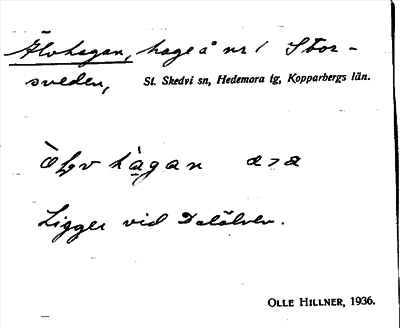 Älvhagan, hage å nr 1 Stor-
sveden, St. Skedvi sn, Hedemora tg, Kopparbergs län.
hàgan a>a
Ligger vid Dalälven.
OLLE HILLNER, 1936.